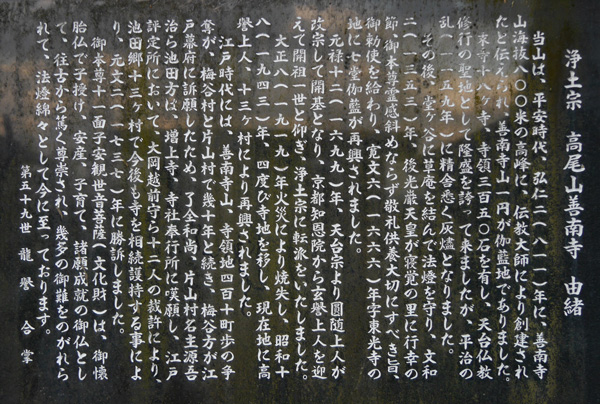 浄土宗 高尾山善南寺 由緒
当山は、平安時代、弘仁二(八一一)年に、善南寺
山海抜八〇〇米の高峰に、伝教大師により創建され
たと伝えられ、善南寺山一円が伽藍地でありました。
末寺十八ヶ寺、寺領三百五〇石を有し、天台仏教
修行の聖地として隆盛を誇って来ましたが、平治の
乱(一一五九年)に精舎悉く灰燼となりました。
その後、堂ヶ谷に草庵を結んで法燈を守り、文和
二(一三五三)年、後光厳天皇が寝覚の里に行幸の
節、御本尊霊感斜めならず敬礼供養大切にすべき旨、
御勅使を給わり、寛文六(一六六六)年字東光寺の
地に七堂伽藍が再興されました。
元禄十二(一六九九)年、天台宗より圓随上人が
改宗して開基となり、京都知恩院から玄譽上人を迎
えて開祖一世と仰ぎ、浄土宗に転派をいたしました。
大正八(一九一九)年火災により焼失し、昭和十
八(一九四三)年、四度び寺地を移し、現在地に高
譽上人、十三ヶ村により再興されました。
江戸時代には、善南寺山、寺領地四百十町歩の争
奪が、梅谷村と片山村で幾十年と続き、梅谷方が江
戸幕府に訴願したため、了全和尚、片山村名主源吾
治ら池田方は、増上寺、寺社奉行所に嘆願し、江戸
評定所において、大岡越前守ら十二人の裁許により、
池田郷十三ヶ村で今後も寺を相続護持する事によ
り、元文二(一七三七)年に勝訴しました。
御本尊十一面子安観世音菩薩(文化財)は、御懐
胎仏で子授け、安産、子育て、諸願成就の御仏とし
て、往古から篤く尊崇され、幾多の御難をのがれら
れて、法燈綿々として今に至っております。
第五十九世 龍譽 合掌